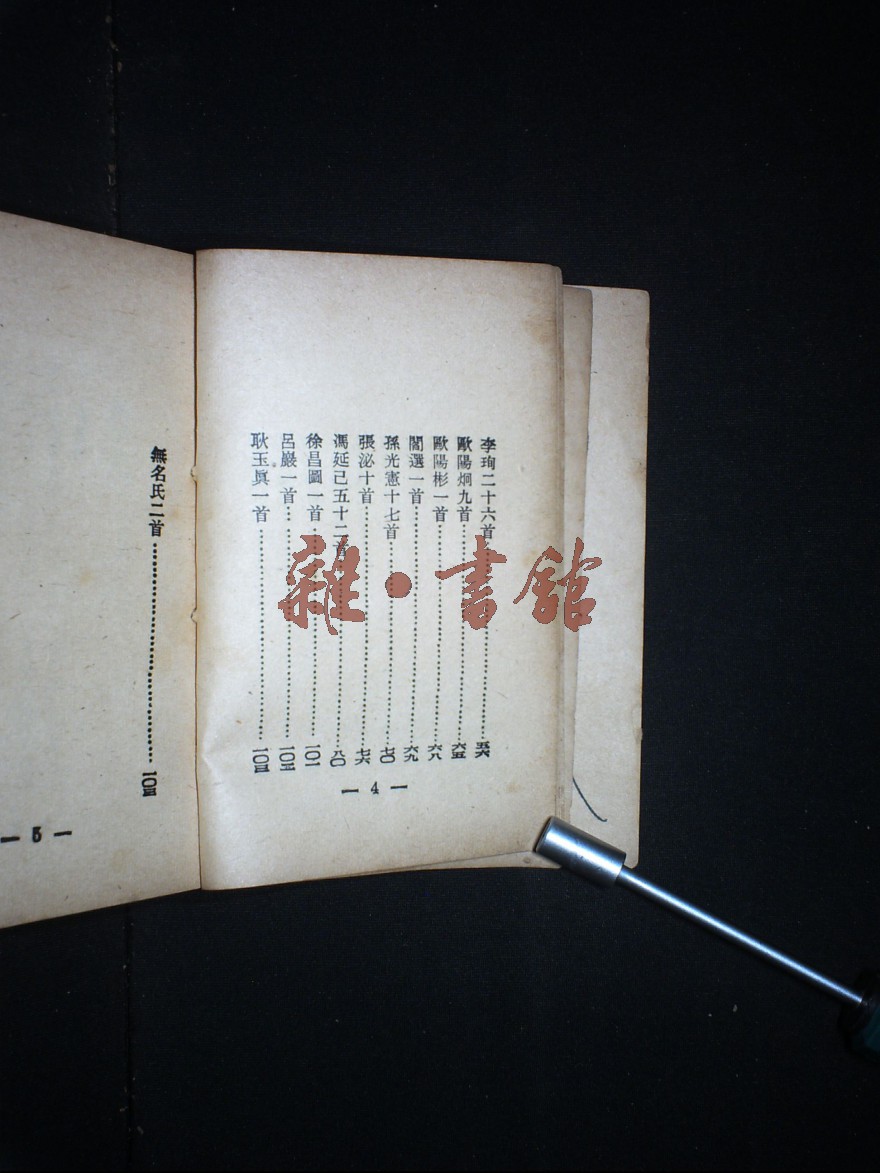 李珣二十六首……五六
歐陽炯九首……六五
歐陽彬一首……六八
閻選一首……六九
孫光憲十七首……七〇
張泌十首……七六
馮延己五十二首……八〇
徐昌圖一首……一〇一
呂巖一首……一〇二
耿玉眞一首……一〇三
— 4 —
無名氏二首……一〇三
— 5 —
雜·書館